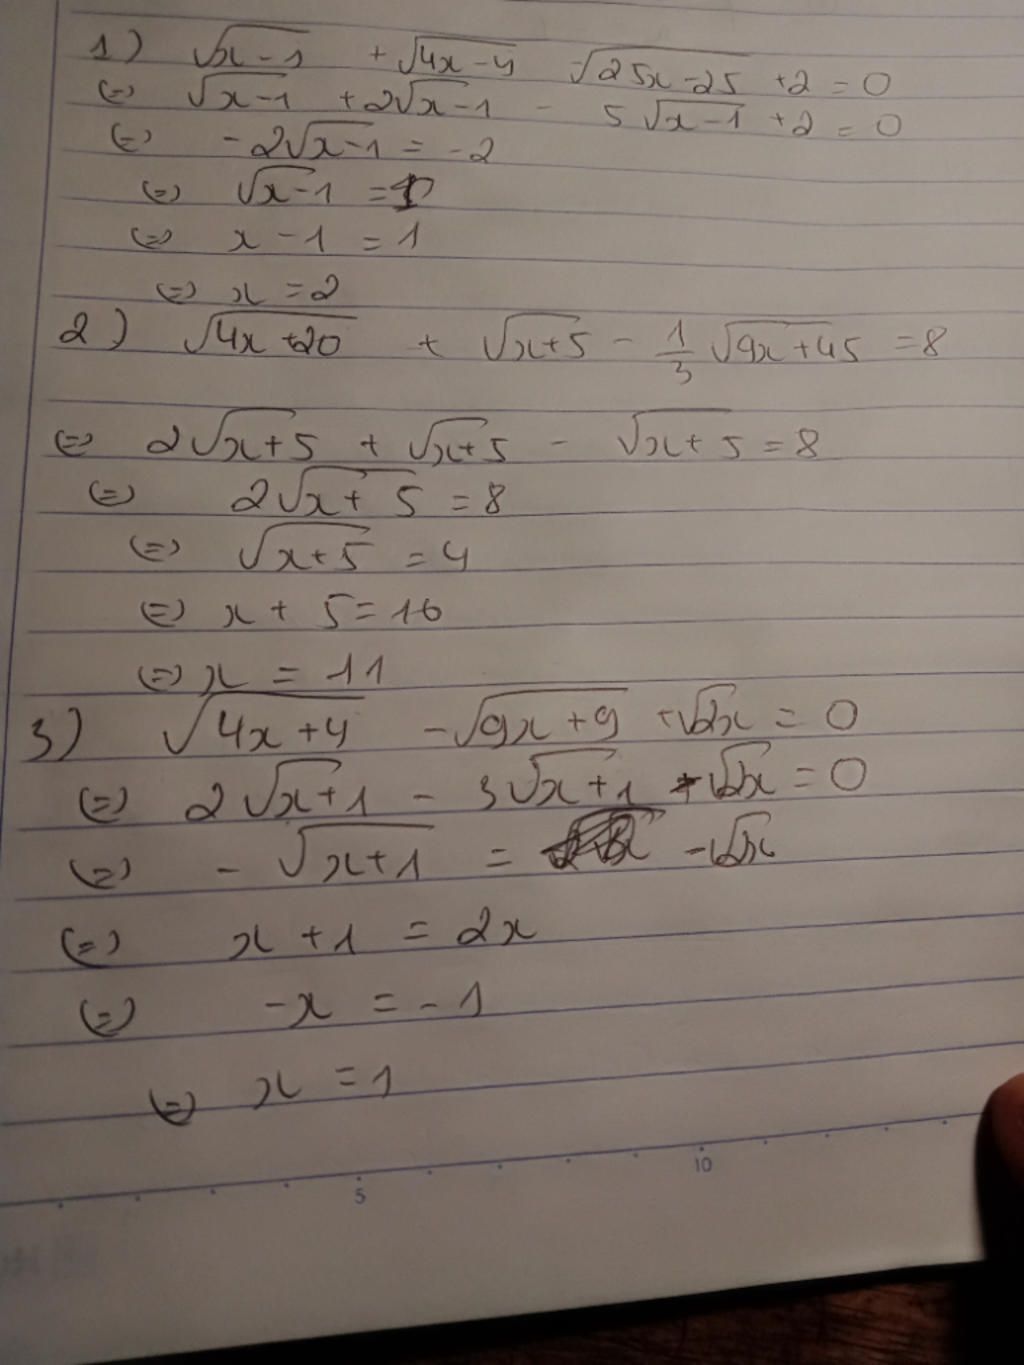 1) √x-1 + √4x-4 - √25x-25 + 2 = 0
(=) √x-1 + 2√x-1 - 5√x-1 + 2 = 0
(=) -2√x-1 = -2
(=) √x-1 = 1
(=) x - 1 = 1
(=) x = 2
2) √4x+20 + √x+5 - 1/3 √9x+45 = 8
(=) 2√x+5 + √x+5 - √x+5 = 8
(=) 2√x+5 = 8
(=) √x+5 = 4
(=) x + 5 = 16
(=) x = 11
3) √4x+4 - √9x+9 + √2x = 0
(=) 2√x+1 - 3√x+1 + √2x = 0
(=) - √x+1 = -√2x
(=) x + 1 = 2x
(=) -x = -1
(=) x = 1
5 10